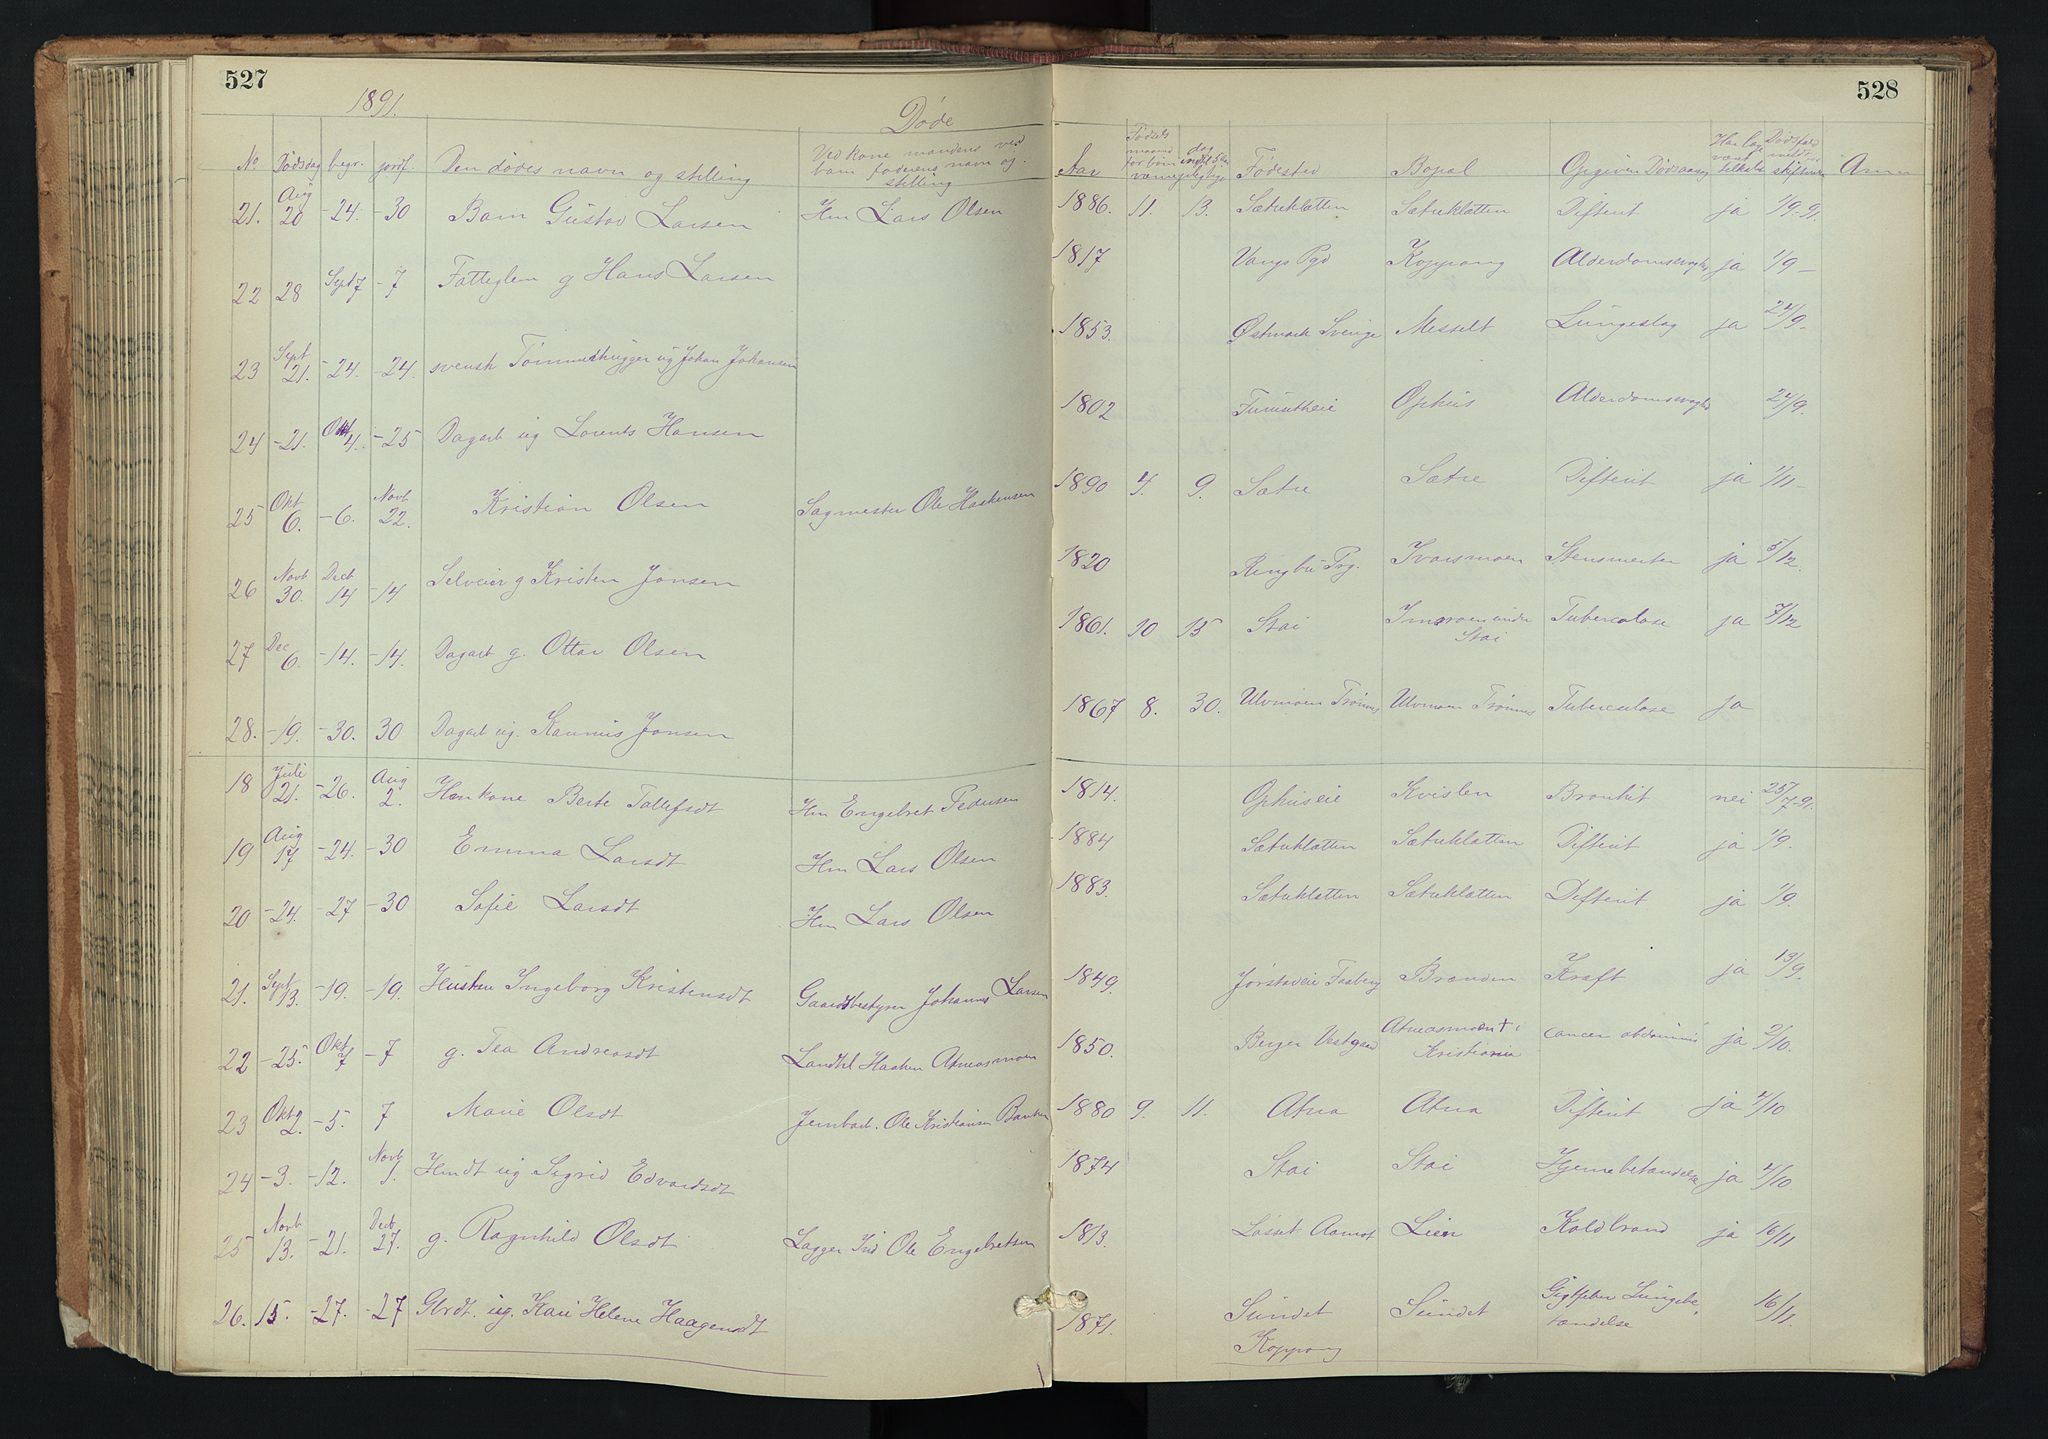 527
528
1891.
Døde
No Dødsdag begr. jordf. Den dødes navn og stilling Ved kone mandens ved barn faderens navn og stilling Aar Fødsels maaned dag Fødested Bopæl Opgiven Dødsaarsag
21. Aug 20 -24. -30 Barn Gustav Larsen Hm Lars Olsen 1886. 11. 13. Sætuklatten Sætuklatten Difterit ja 1/9-91.
22 28 Sept 7 -7 Fatteglem g Hans Larsen 1817 Vangs Pgd Koppang Alderdomssvaghed ja 1/9-
23 Sept 21. -24. -24. svensk Tømmerhugger ug Johan Johansen 1853. Østmark Sverige Messelt Lungeslag ja 24/9-
24 -21. Okt 4. -25 Dagarb ug Lorents Hansen 1802 Furuutheie Ophus Alderdomssvaghed 24/9.
25 Okt 6. -6. Novb 22. Kristian Olsen Sagmester Ole Haakensen 1890 4. 9. Sætre Sætre Difterit ja 1/11-
26 Novb 30. Decb 14 -14 Selveier g Kristen Jonsen 1820 Ringbu Prg. Ivarsmoen Stensmerter ja 5/12.
27 Dec 6. -14. -14. Dagarb g. Ottar Olsen 1861. 10 15 Stai Imoroen under Stai Tuberculose ja 7/12
28. -19. -30. 30 Dagarb ug. Rasmus Jonsen 1867 8. 30. Ulvmoen Trønnes Ulvmoen Trønnes Tuberculose ja
18 Juli 21. -26. Aug 2. Hmkone Berte Tollefsdt Hm Engebret Pedersen 1814. Ophuseie Kvislen Bronkit nei 25/7-91.
19 Aug 17 -24. -30 Emma Larsdt Hm Lars Olsen 1884 Sætuklatten Sætuklatten Difterit ja 1/9.
20 -24. -27 -30 Sofie Larsdt Hm Lars Olsen 1883. Sætuklatten Sætuklatten Difterit ja 1/9.
21. Sept 13. -19. -19. Hustru Ingeborg Kristensdt Gaardsbestyrer Johannes Larsen 1849. Jørstadeie Faaberg Brænden Kræft ja 13/9.
22 -25. Okt 7 -7 g. Tea Andreasdt Landhl Haaken Atneosmoen 1850. Berger Vestgaard Atneosmoen † i Kristiania cancer abdominis ja 2/10.
23 Okt 2. -5. 7 Marie Olsdt Jernbarb. Ole Kristiansen Bakken 1880 9. 11. Atna Atna Difterit ja 7/10
24 -3. -12. Novb 1. Hmdt ug Sigrid Edvardsdt 1874 Stai Stai Hjernebetændelse ja 7/10
25 Novb 13. -21. Decb 27. g. Ragnhild Olsdt Lægger Ind Ole Engebretsen 1813. Løsset Aamot Lien Koldbrand ja 16/11
26. 15. -27. -27 Gbrdt. ug. Kari Helene Haagensdt 1871. Sundet Koppang Sundet Gigtfeber Lungebetændelse 16/11.